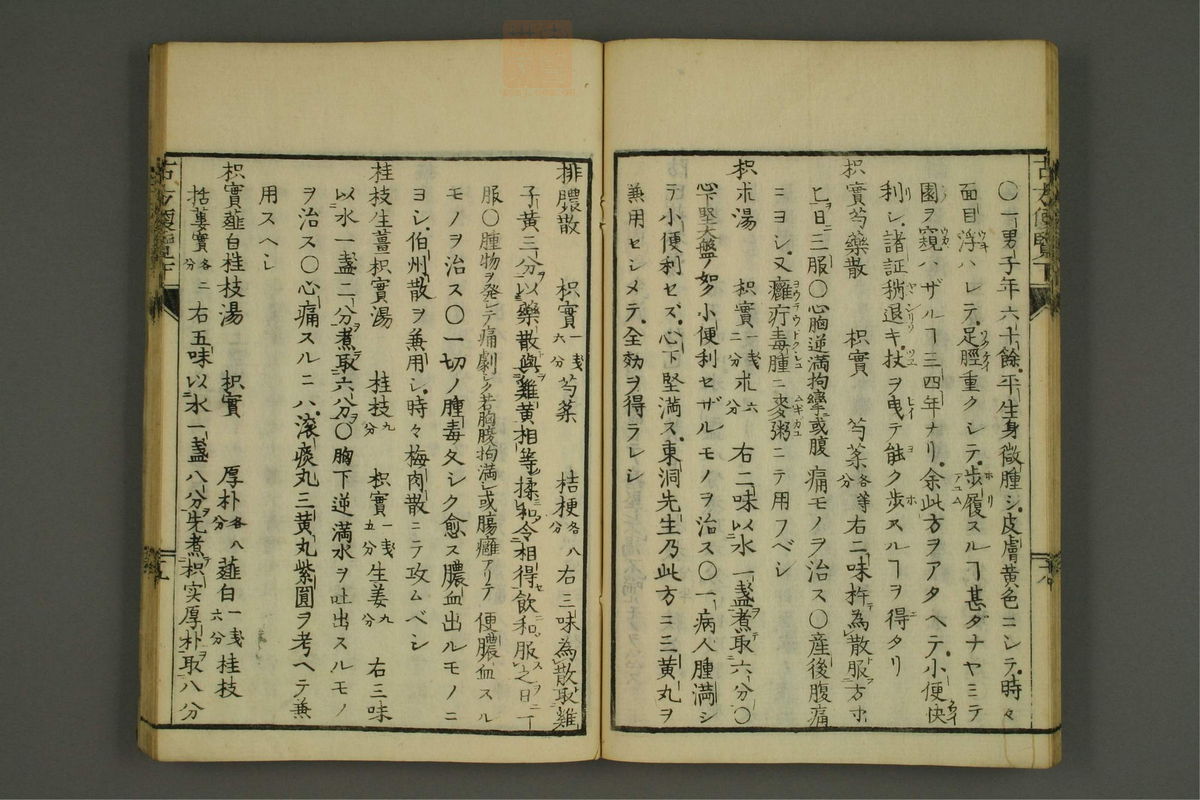 古方便覽下
〇一男子年六十餘平生身微腫シ皮膚黄色ニシテ時々
面目浮ハレテ足脛重クシテ歩履スルヿ甚ダナヤミテ
園ヲ窺ハザルヿ三四年ナリ余此方ヲアタヘテ小便快
利シ諸証稍退キ杖ヲ曳テ能ク歩スルヿヲ得タリ
枳實芍藥散 枳實 芍薬各等分 右二味杵為散服方寸
匕日三服〇心胸逆満拘攣或腹痛モノヲ治ス〇産後腹痛
ニヨシ又癰疔毒腫ニ麥粥ニテ用フベシ
枳朮湯 枳實一戔二分 朮六分 右二味以水一盞煮取六分〇
心下堅大盤ノ如ク小便利セザルモノヲ治ス〇一病人腫満シ
テ小便利セズ心下堅満ス東洞先生乃此方ニ三黄丸ヲ
兼用セシメテ全効ヲ得ラレシ
二十八
排膿散 枳實一戔六分 芍薬 桔梗各八分 右三味為散取雞
子黄三分以藥散與雞黄相等揉和令相得飲和服之日一
服〇腫物ヲ発シテ痛劇シク若胸腹拘満シ或腸癰アリテ便膿血スル
モノヲ治ス〇一切ノ腫毒久シク愈ス膿血出ルモノニ
ヨシ伯州散ヲ兼用シ時々梅肉散ニテ攻ムベシ
桂枝生薑枳實湯 桂枝九分 枳實一戔五分 生姜九分 右三味
以水一盞二分煮取六分〇胸下逆満水ヲ吐出スルモノ
ヲ治ス〇心痛スルニハ滚痰丸三黄丸紫圓ヲ考ヘテ兼
用スヘシ
枳實薤白桂枝湯 枳實 厚朴各八分 薤白一戔六分 桂枝
括蔞實各二分 右五味以水一盞八分先煮枳实厚朴取八分
古方便覽下